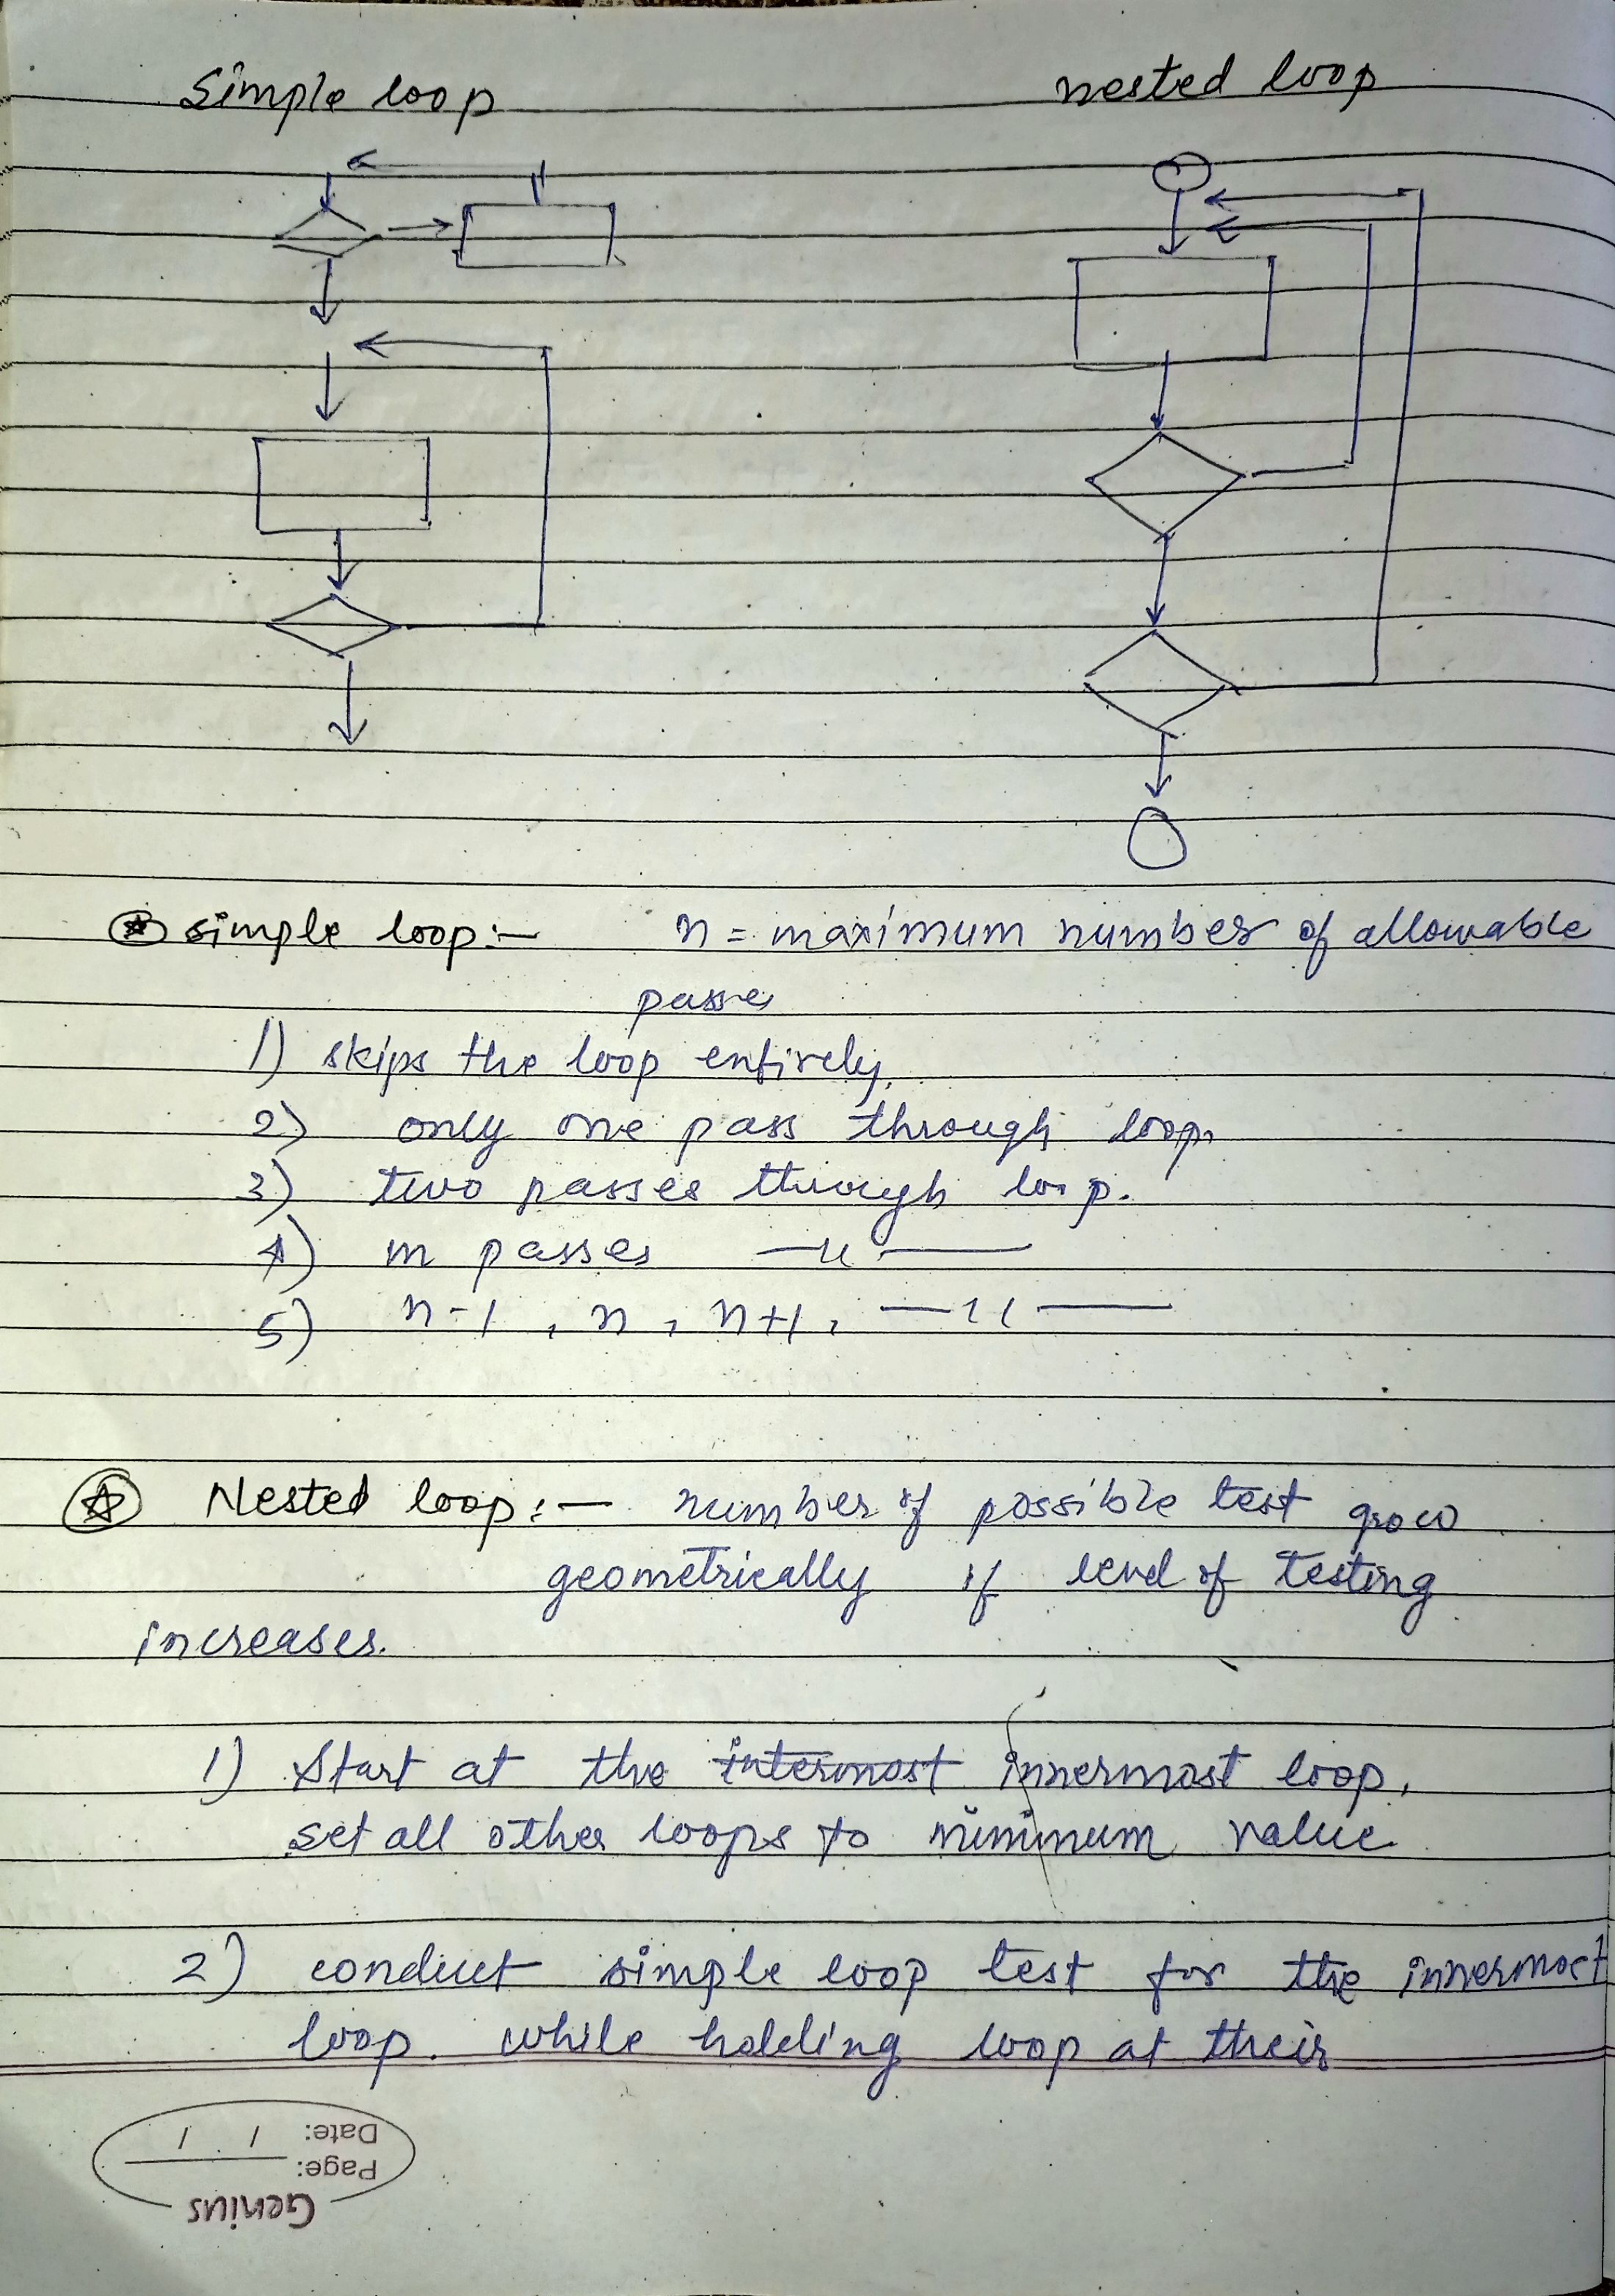 Simple loop
nested loop
simple loop:- n = maximum number of allowable
passes
1) skips the loop entirely.
2) only one pass through loop.
3) two passes through loop.
4) m passes —"—
5) n-1, n, n+1, —"—
Nested loop:- number of possible test grow
geometrically if level of testing
increases.
1) Start at the intermost innermost loop,
set all other loops to minimum value
2) conduct simple loop test for the innermost
loop. while holding loop at their
Date: / /
Page:
Genius